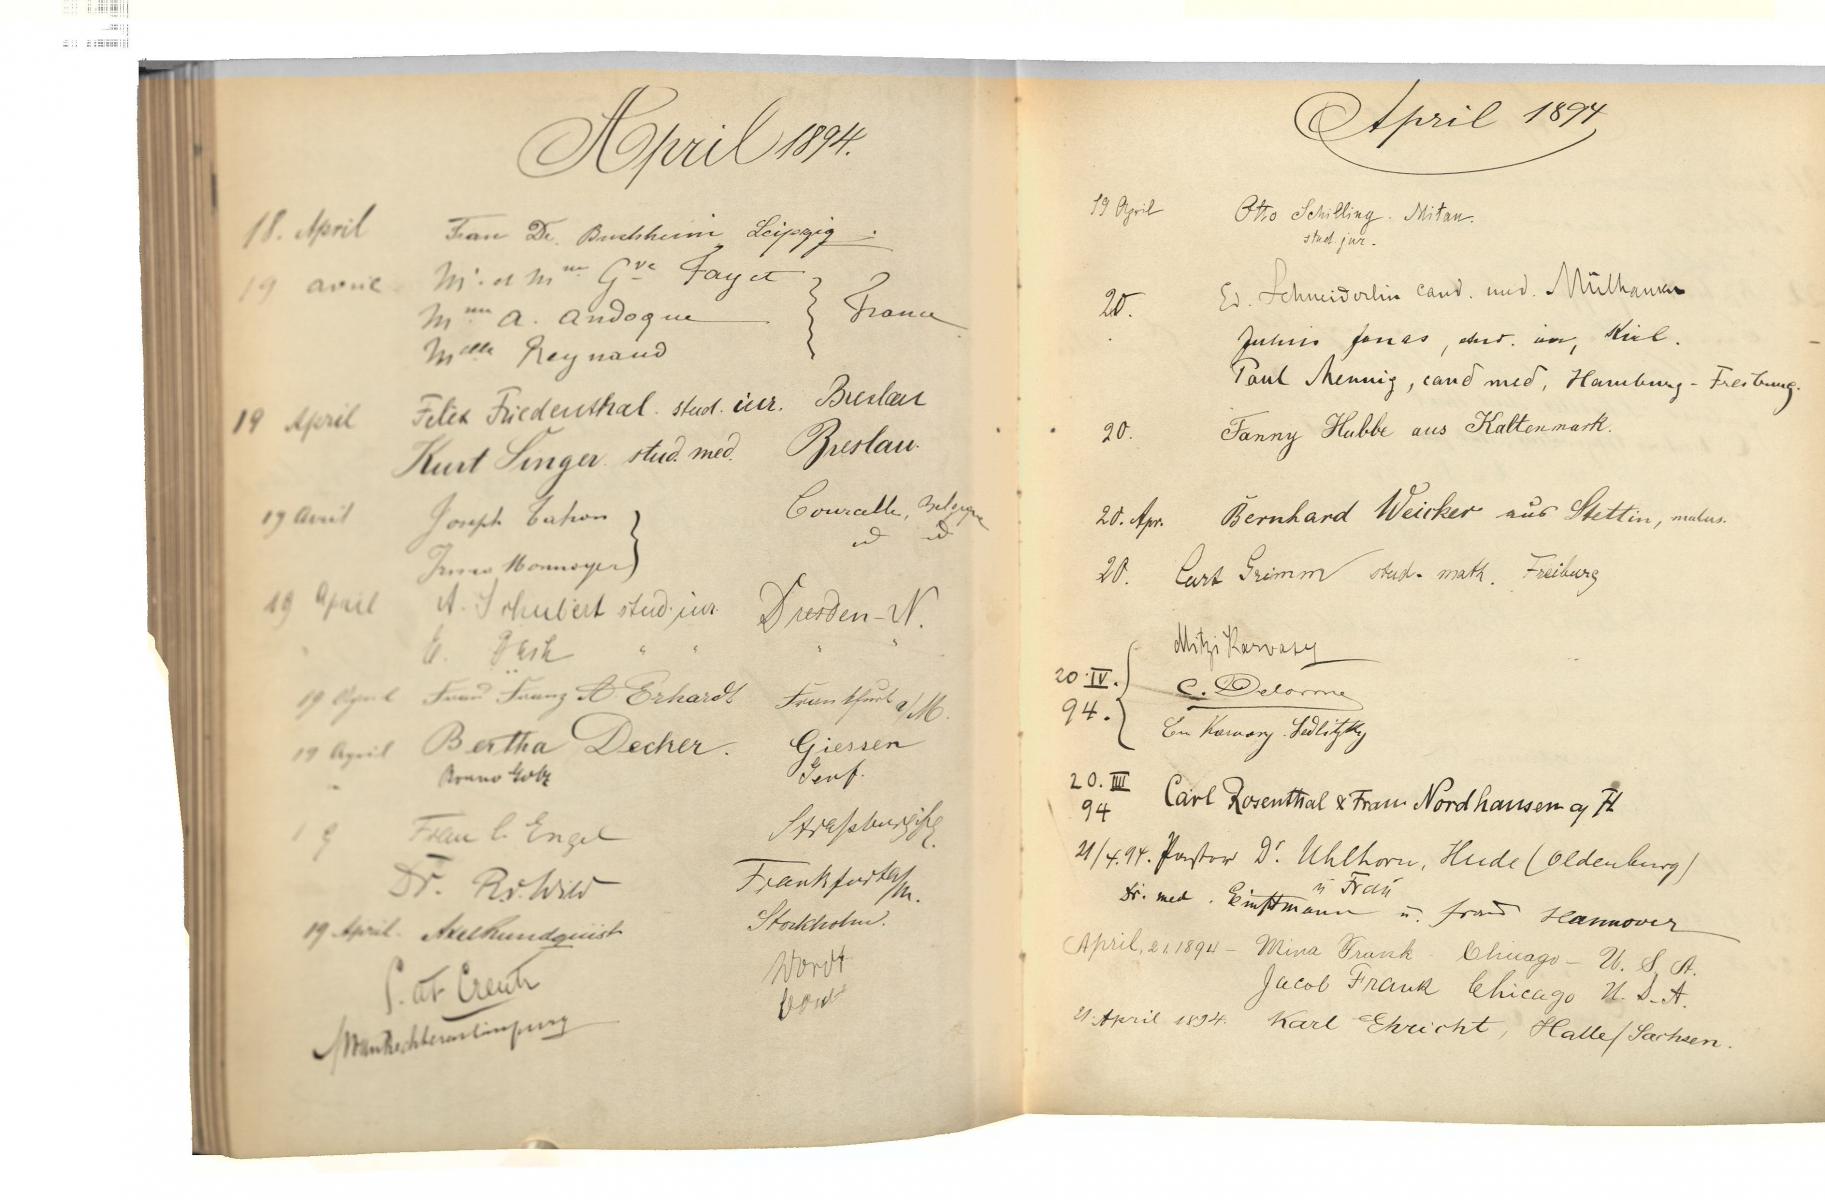 April 1894.
18. April Frau Dr. Buchheim Leipzig.
19 avril Mr. et Mme Gve Fayet
Mme A. Andoque France
Melle Reynaud
19 April Felix Friedenthal. stud. iur. Breslau
Kurt Singer. stud. med. Breslau.
19 Avril Joseph Courcelle, Belgique
id id
19 April A. Schubert stud. iur. Dresden-N.
E. " " " "
19 April Frau Franz A Erhardt Frankfurt a/M.
19 April Bertha Decker. Giessen
Bruno Götz Genf.
19 Frau C. Engel Straßburg
Dr. Rd. Wild Frankfurt a/M.
19 April. Axel Rundquist Stockholm.
April 1894
19 April Otto Schilling. Mitau.
stud. jur.
20. Ed. Schneiderlin cand. med. Mülhausen
Julius Jonas, Kiel.
Paul Mennig, cand med, Hamburg - Freiburg.
20. Fanny Hubbe aus Kaltenmark.
20. Apr. Bernhard Weicker aus Stettin,
20. Curt Grimm stud. math. Freiburg
Mitzi Karvasy
20. IV. C. Delorme
94. Karvasy. Sedlitzky
20. IIII Carl Rosenthal & Frau Nordhausen a/H
94
21/4.94. Pastor Dr. Uhlhorn, Hude (Oldenburg)
u Frau
Dr. med. u. Frau Hannover
April, 21. 1894 - Mina Frank - Chicago - U. S. A.
Jacob Frank Chicago U. S. A.
21. April 1894. Karl Ehricht, Halle/Sachsen.